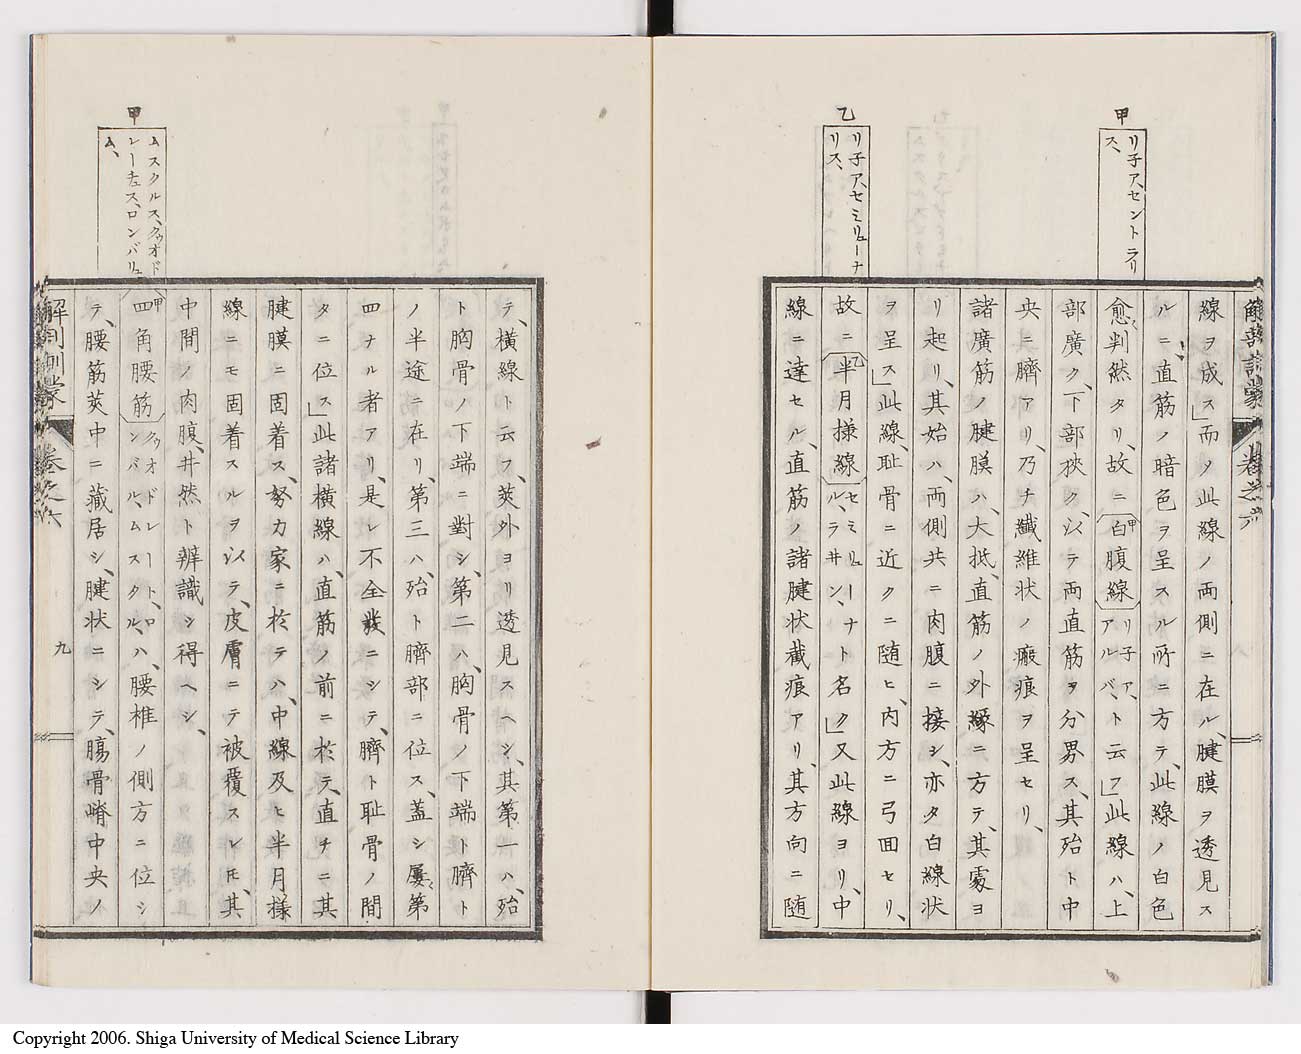 甲
リ子アセントラリ
ス、
乙
リ子アセミリューナ
リス、
解剖訓蒙 卷之六
線ヲ成ス」而ノ此線ノ両側ニ在ル、腱膜ヲ透見ス
ルニ、直筋ノ暗色ヲ呈スル所ニ方テ、此線ノ白色
愈判然タリ、故ニ白腹線リ子ア、アルバ、ト云フ」此線ハ、上
部廣ク、下部挾ク、以テ両直筋ヲ分界ス、其殆ト中
央ニ臍アリ、乃チ纖維状ノ瘢痕ヲ呈セリ、
諸廣筋ノ腱膜ハ、大抵、直筋ノ外縁ニ方テ、其處ヨ
リ起リ、其始ハ、両側共ニ肉腹ニ接シ、亦タ白線状
ヲ呈ス」此線、耻骨ニ近クニ随ヒ、内方ニ弓面セリ、
故ニ半月様線セミリューナル、ラ井ン、ト名ク」又此線ヨリ、中
線ニ達セル、直筋ノ諸腱状截痕アリ、其方向ニ随
甲
ムスクルス、クゥオド
レーチュス、ロンバリュ
ム、
テ、横線ト云フ、莢外ヨリ透見スヘシ、其第一ハ、殆
ト胸骨ノ下端ニ對シ、第二ハ、胸骨ノ下端ト臍ト
ノ半途ニ在リ、第三ハ、殆ト臍部ニ位ス、蓋シ屢第
四ナル者アリ、是レ不全裁ニシテ、臍ト耻骨ノ間
タニ位ス」此諸横線ハ、直筋ノ前ニ於テ、直チニ其
腱膜ニ固着ス、努力家ニ於テハ、中線及ヒ半月様
線ニモ固着スルヲ以テ、皮膚ニテ被覆スレ𪜈、其
中間ノ肉腹、井然ト辨識シ得ヘシ、
四角腰筋クゥオドレート、ロンバル、ムスクル、ハ、腰椎ノ側方ニ位シ
テ、腰筋莢中ニ藏居シ、腱状ニシテ、膓骨崎中央ノ
解剖訓蒙 卷之六
九
Copyright 2006. Shiga University of Medical Science Library